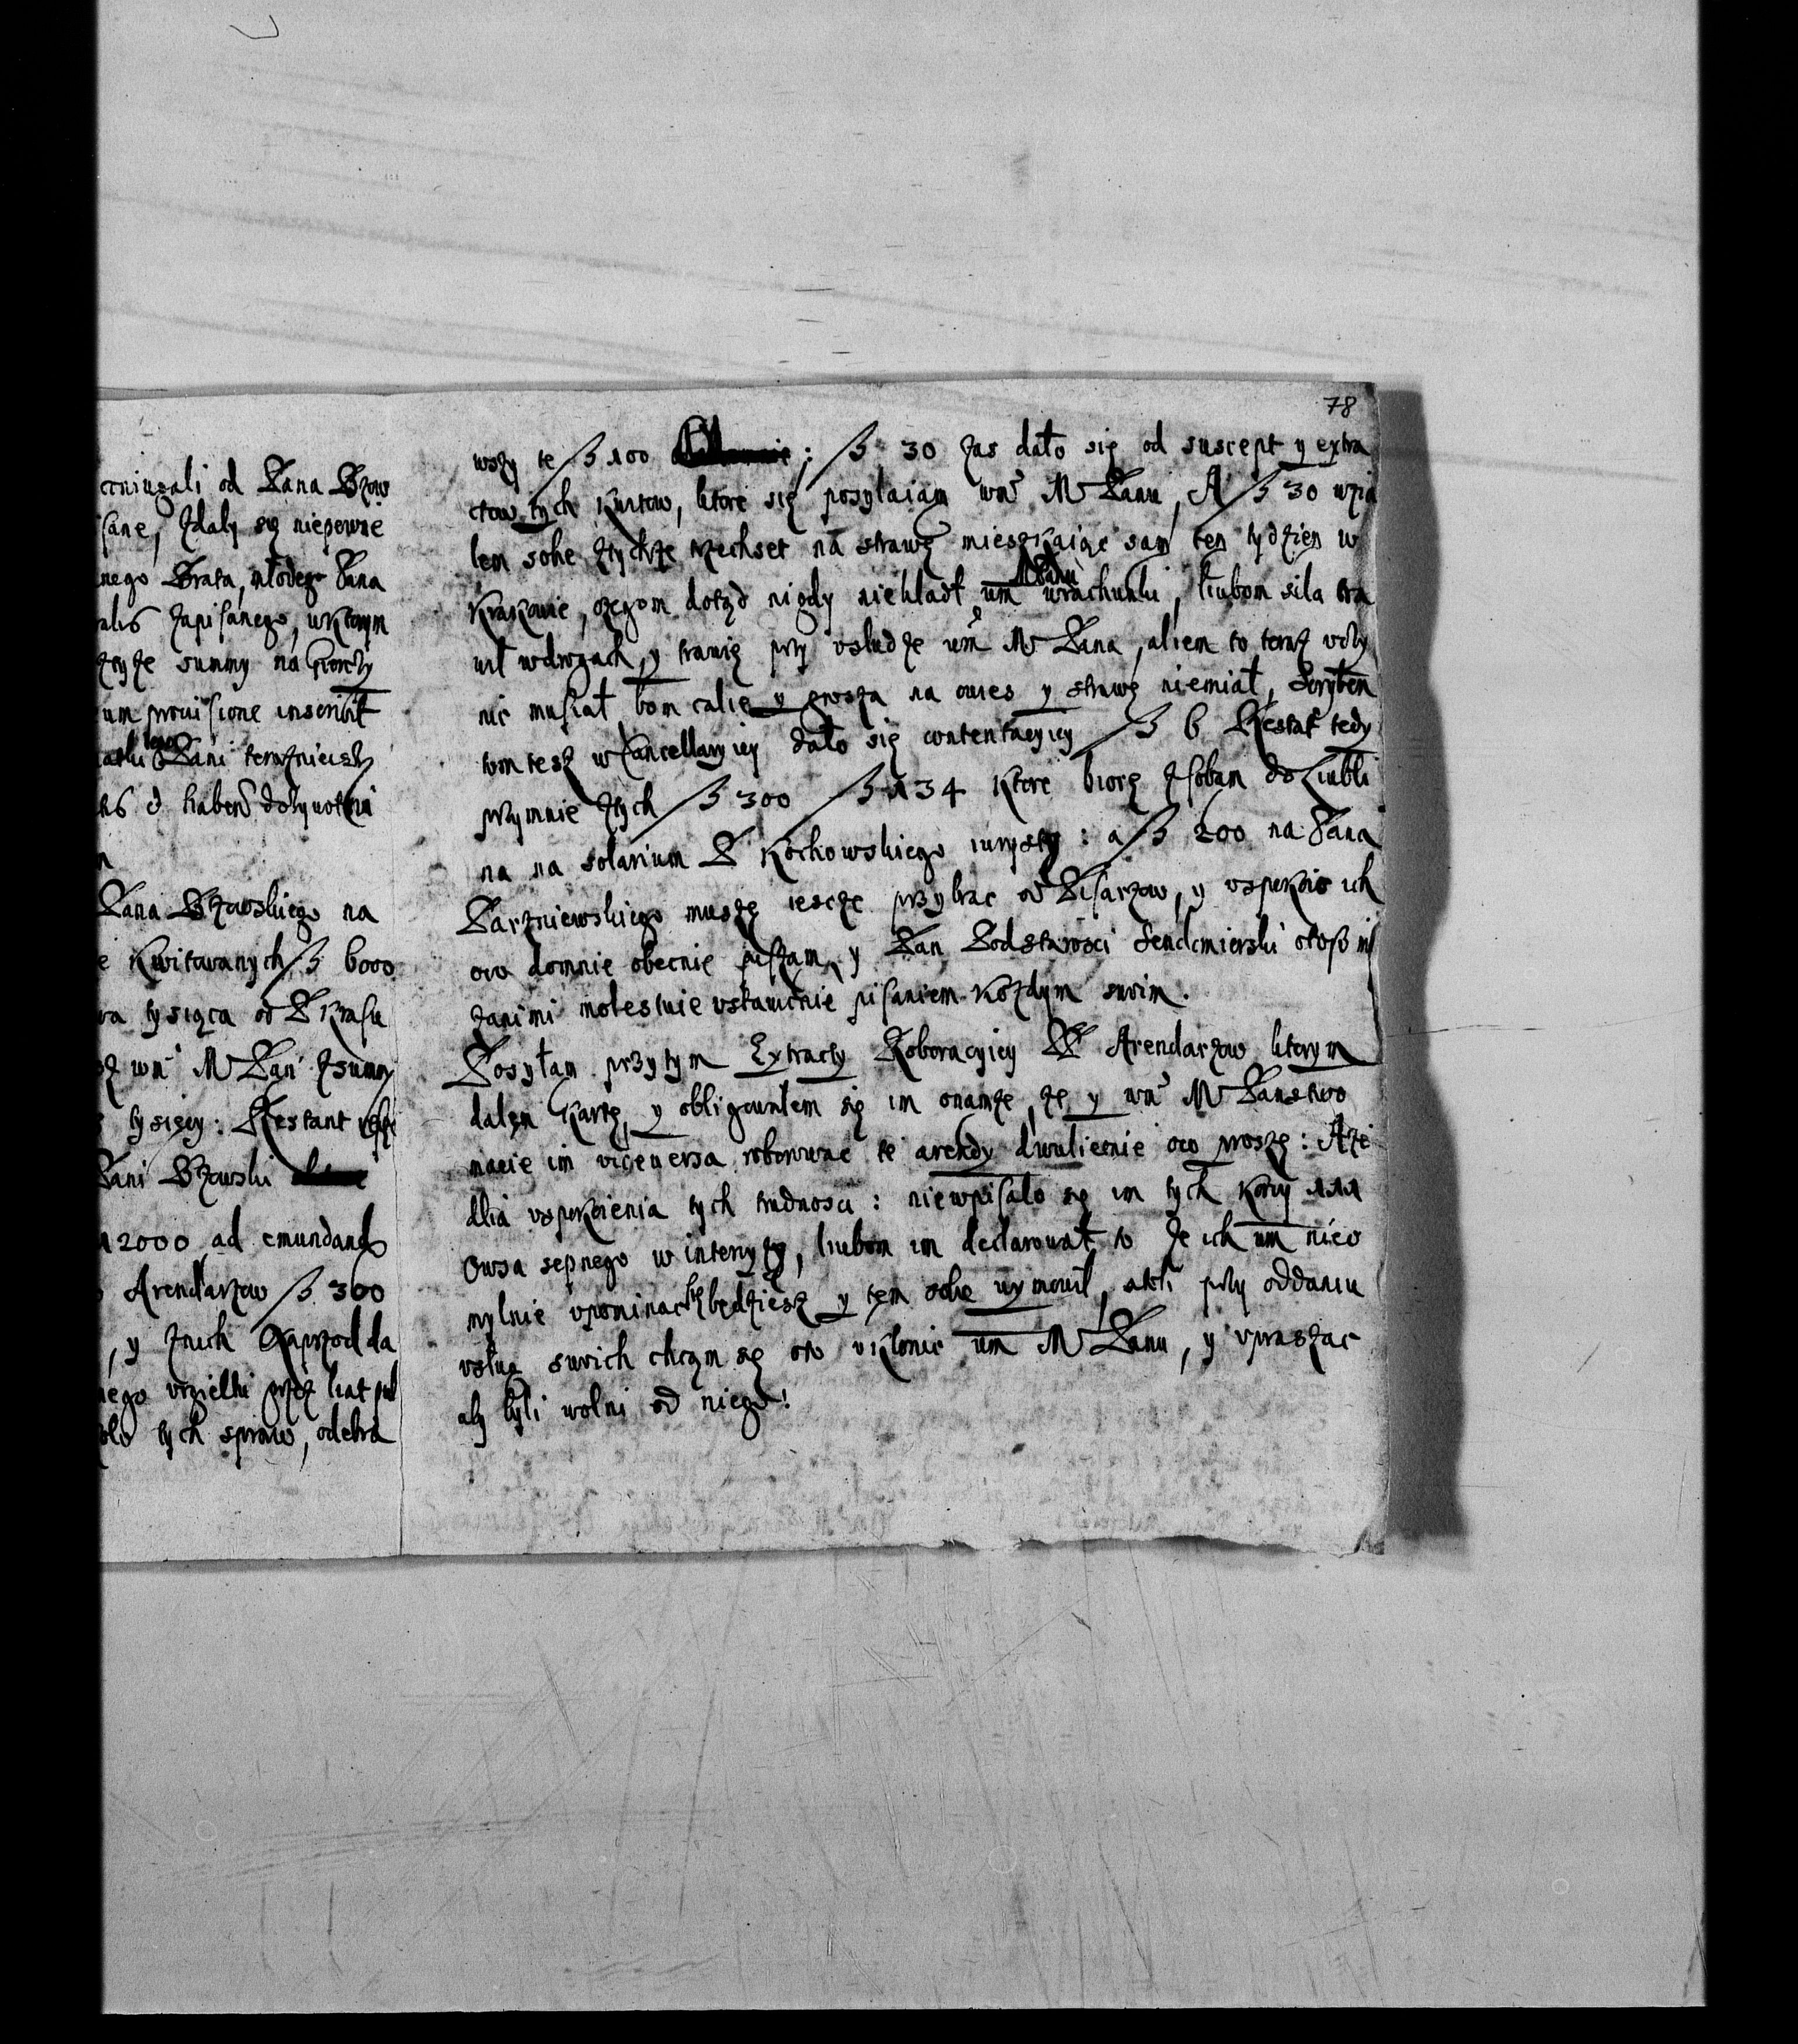 78
ccniugali od Pana Bzow
sane, zdały się niepewne
nego Brata, młodego Pana
alis zapisanego, wktorym
tyże summy na
um prouisione inscribit
Pani terazniejsz
haben dożywotnia
Pana Bzowskiego na
e kwitowanych ß 6000
wa tysiąca od P Krasu
wm M Pan zsumy
tysięcy: Restant
Pani Bzowski
2000 ad emundand
Arendarzow ß 300
, y znich Naprzod da
nego wzielki
oło tych spraw, odebra
wszy te ß 100 ; ß 30 zas dało się od suscept y extra
ctow tych kwitow, ktore się posyłaiąm wm M Panu, A ß 30 wzia
łem sobe ztychże trzechset na strawę mieszkaiąc sam ten tydzien w
Krakowie, czegom dotąd nigdy niekładł um MPanu wrachunki, liubom siła tra
wił wdrogach, y trawię przy usłudze um M Pana, aliem to teraz uczy
nic musiał bom calie y grosza na owies y strawę niemiał, Scryben
tom tesz w Cancellaryiey dało się contentacyiey ß 6 Restat tedy
przymnie ztych ß 300 ß 134 ktore biorę zsobam do Liubli
na na solarium P Kochowskiego iurysty: a ß 200 na Pana
Parzniewskiego muszę iescze przybrac od Pisarzow, y uspokoic ich
oco domnie obecnie piszam, y Pan Podstarosci Sendomierski otosz mi
zanimi molestuie ustawicnie pisaniem kozdym swim.
Posyłam przytym Extracty Roboracyiey PP Arendarzow, ktorym
dałem Kartę, y obligowałem się im onamże, że y wm M Panstwo
macie im viceversa roborowac te arendy dwuliecnie oco proszę: Aże
dlia uspokoienia tych trudnosci: niewpisało się im tych Korcy 111
Owsa sepnego w intercyzę, liubom im declarowat to że ich um nieo
mylnie upominac się będziesz y tem sobe wymowił, atoli przy oddaniu
usług swich chcąm się oto ukłonic um M Panu, y upraszac
aby byli wolni od niego!